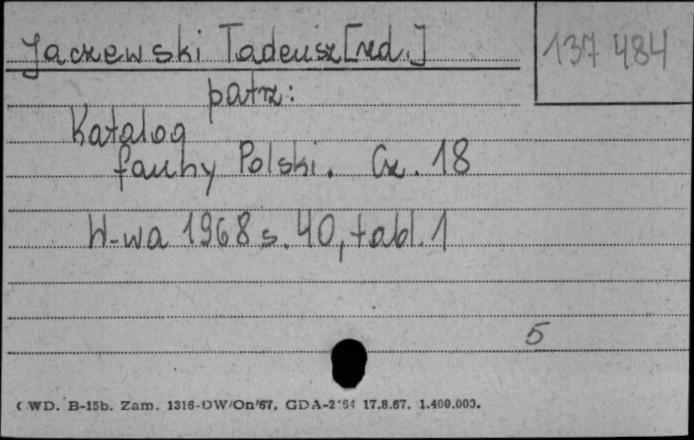 Jaczewski Tadeusz [red.]
137 484
patrz:
Katalog
fauny Polski. Cz. 18
W-wa 1968 s. 40, tabl. 1
5
CWD. B-15b. Zam. 1316-DW/On/67. GDA-2164 17.8.67. 1.400.000.